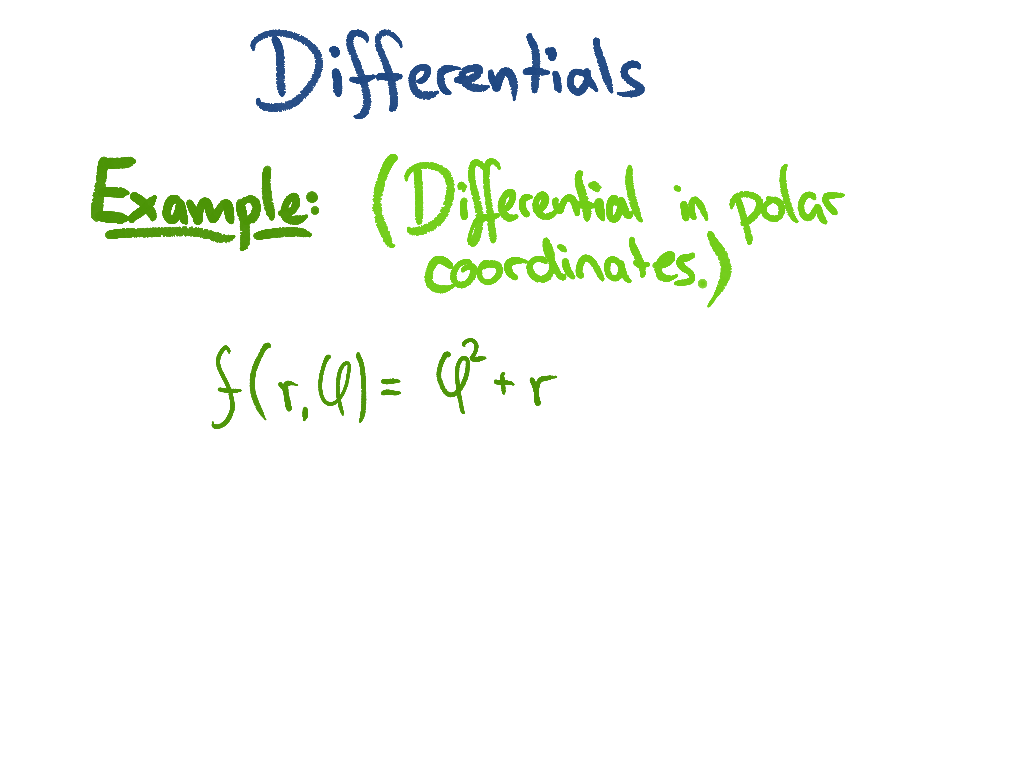 Differentials
Example: (Differential in polar
coordinates.)
f(r,φ) = φ² + r